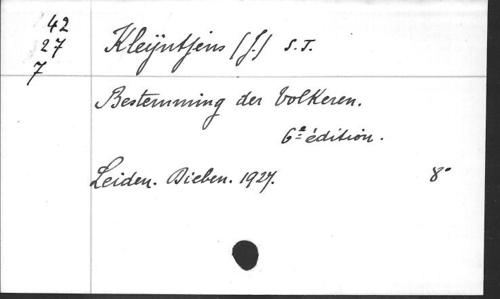 42
27
7
Kleijntjens (J.) S.J.
Bestemming der Volkeren.
6e édition.
Leiden. Dieben. 1927. 8°